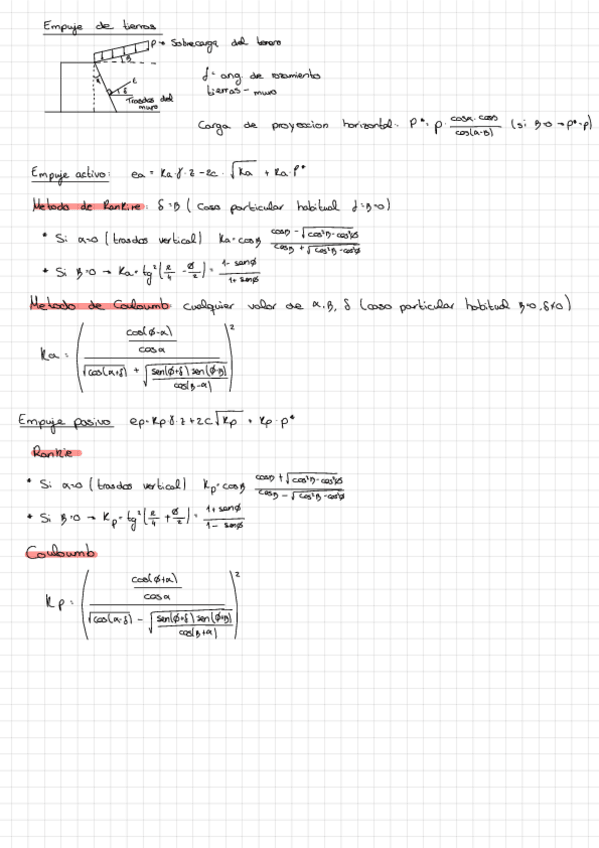 Empuje de tierras
P → Sobrecarga del terreno
β
α
δ
Trasdos del muro
δ = ang. de rozamiento
tierras - muro
Carga de proyeccion horizontal: P* = p · cosα · cosβ / cos(α-β) (si β=0 → p*=p)
Empuje activo: ea = Ka·γ·z - 2c·√Ka + Ka·P*
Metodo de Rankine: δ=β (caso particular habitual δ=β=0)
* Si α=0 (trasdos vertical) Ka = cosβ (cosβ - √(cos²β - cos²ø)) / (cosβ + √(cos²β - cos²ø))
* Si β=0 → Ka = tg²(π/4 - ø/2) = (1 - senø) / (1 + senø)
Metodo de Couloumb: cualquier valor de α, β, δ (caso particular habitual β=0, δ≠0)
Ka = ( (cos(ø-α) / cosα) / (√cos(α+δ) + √(sen(ø+δ) sen(ø-β) / cos(β-α))) )²
Empuje pasivo ep = Kp γ·z + 2c√Kp + Kp·p*
Rankie
* Si α=0 (trasdos vertical) Kp = cosβ (cosβ + √(cos²β - cos²ø)) / (cosβ - √(cos²β - cos²ø))
* Si β=0 → Kp = tg²(π/4 + ø/2) = (1 + senø) / (1 - senø)
Couloumb
Kp = ( (cos(ø+α) / cosα) / (√cos(α-δ) - √(sen(ø+δ) sen(ø+β) / cos(β+α))) )²